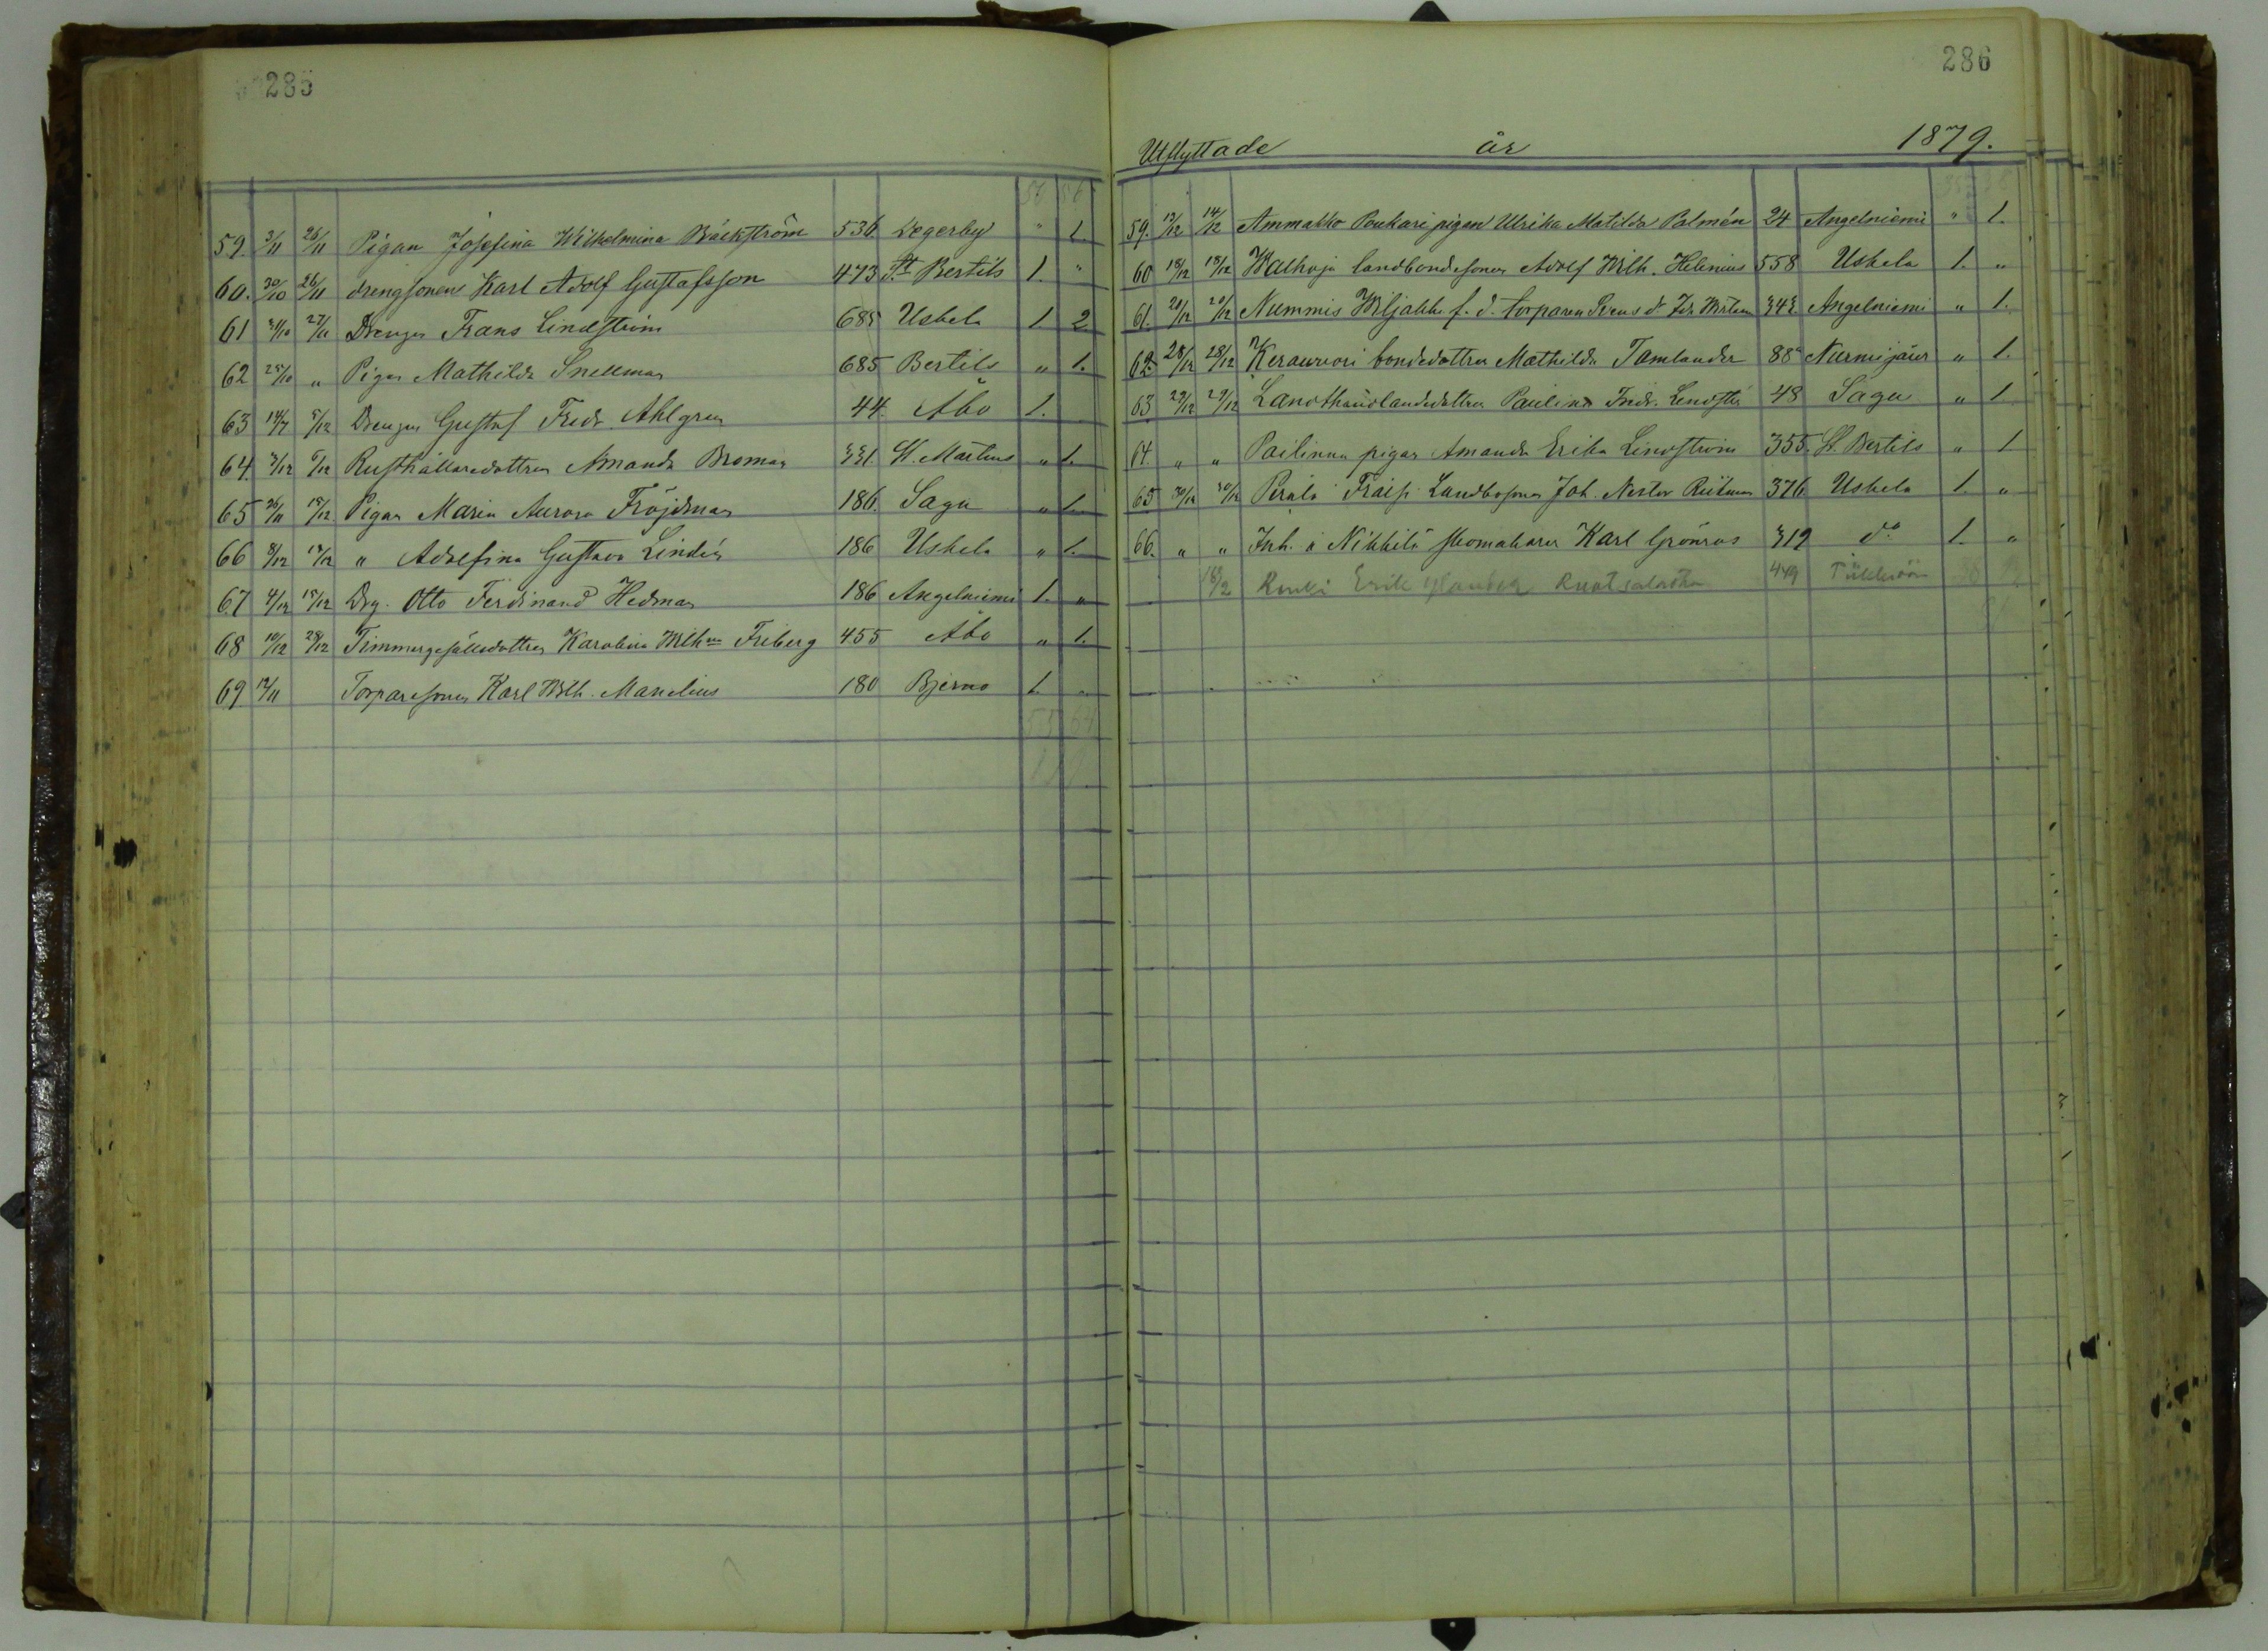 285
59. 3/11 26/11 Pigan Josefina Wilhelmina Bäckström 536 Degerby " 1.
60. 30/10 26/11 drengsonen Karl Adolf Gustafsson 473 St Bertils 1. "
61 31/10 27/11 Drengen Frans Lindström 685 Uskela 1. 2
62 25/10 " Pigan Mathilda Snellman 685 Bertils " 1.
63 14/7 5/12 Drengen Gustaf Fredr. Ahlgren 44. Åbo 1.
64. 3/12 6/12 Rusthållaredottren Amanda Broman 331. St. Mårtens " 1.
65 26/11 15/12 Pigan Maria Aurora Fröjdman 186. Sagu " 1.
66 8/12 15/12 " Adolfina Gustava Lindén 186 Uskela " 1.
67 4/12 15/12 Drg. Otto Ferdinand Hedman 186 Angelniemi 1. "
68 10/12 28/12 Timmergesällsdottren Karolina Wilhna Friberg 455 Åbo " 1.
69 12/11 Torparesonen Karl Wilh. Manelius 180 Bjerno 1. "
286
Utflyttade år 1879.
59. 13/12 14/12 Ammakko Poukari pigan Ulrika Matilda Palmén 24 Angelniemi " 1.
60 18/12 18/12 Walhoja landbondesonen Adolf Wilh. Helenius 558 Uskela 1. "
61. 20/12 20/12 Nummis Wiljakka f. d. torparen 343. Angelniemi " 1.
62. 28/12 28/12 Kerauvori bondedottren Mathilda Tamlander 88 Nurmijärvi " 1.
63 29/12 29/12 Landthandlandedottren Paulina Fredr. 48 Sagu " 1
64. " " Pailinna pigan Amanda Erika Lindström 355. St. Bertils " 1
65 30/12 30/12 Perälä Landbosonen Joh. Nestor 376 Uskela 1. "
66. " " Inh. å Nikkilä skomakaren Karl Grönroos 319 do 1. "
18/2 Erik 449